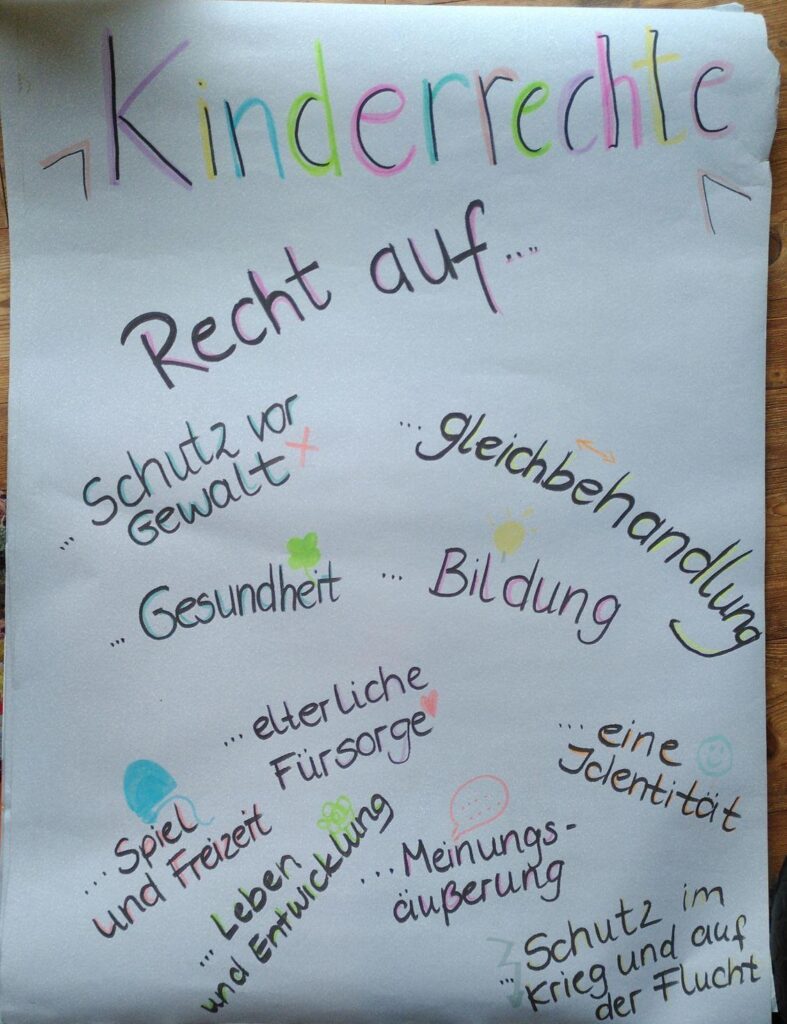 Kinderrechte
Recht auf....
... Schutz vor
Gewalt
... gleichbehandlung
... Gesundheit
... Bildung
... elterliche
Fürsorge
... eine
Identität
... Spiel
und Freizeit
... Leben
und Entwicklung
... Meinungs-
äußerung
... Schutz im
Krieg und auf
der Flucht